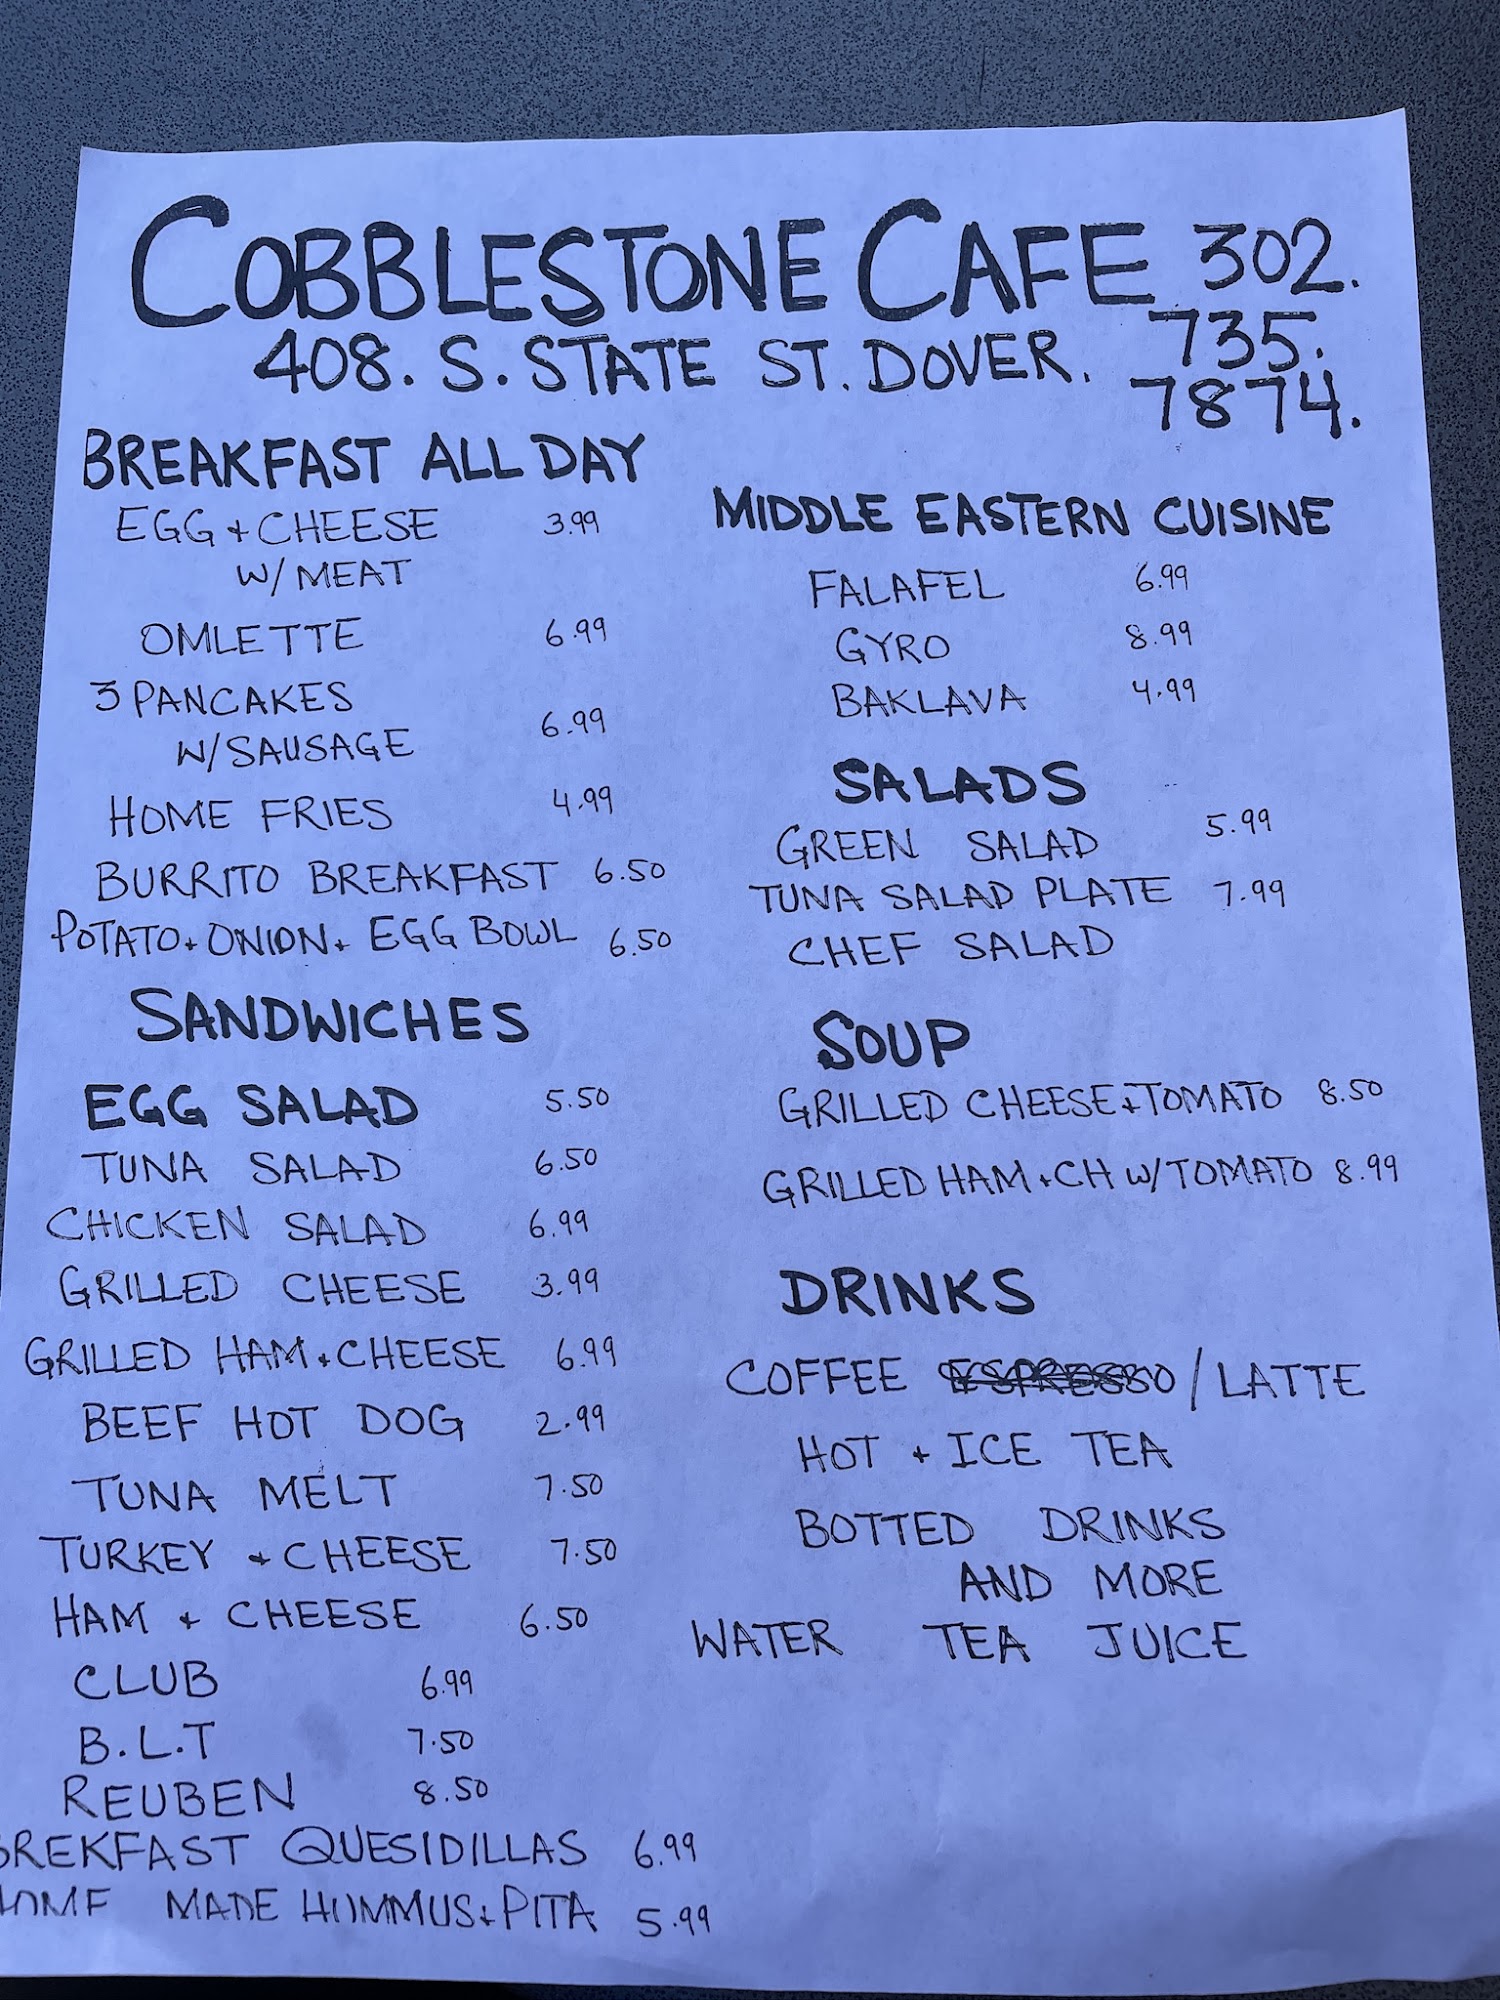 COBBLESTONE CAFE 302.
408. S. STATE ST. DOVER. 735.
7874.
BREAKFAST ALL DAY
EGG + CHEESE 3.99
W/ MEAT
OMLETTE 6.99
3 PANCAKES
W/SAUSAGE 6.99
HOME FRIES 4.99
BURRITO BREAKFAST 6.50
POTATO + ONION + EGG BOWL 6.50
SANDWICHES
EGG SALAD 5.50
TUNA SALAD 6.50
CHICKEN SALAD 6.99
GRILLED CHEESE 3.99
GRILLED HAM + CHEESE 6.99
BEEF HOT DOG 2.99
TUNA MELT 7.50
TURKEY + CHEESE 7.50
HAM + CHEESE 6.50
CLUB 6.99
B.L.T 7.50
REUBEN 8.50
BREKFAST QUESIDILLAS 6.99
HOME MADE HUMMUS + PITA 5.99
MIDDLE EASTERN CUISINE
FALAFEL 6.99
GYRO 8.99
BAKLAVA 4.99
SALADS
GREEN SALAD 5.99
TUNA SALAD PLATE 7.99
CHEF SALAD
SOUP
GRILLED CHEESE + TOMATO 8.50
GRILLED HAM + CH W/ TOMATO 8.99
DRINKS
COFFEE ESPRESSO / LATTE
HOT + ICE TEA
BOTTED DRINKS
AND MORE
WATER TEA JUICE